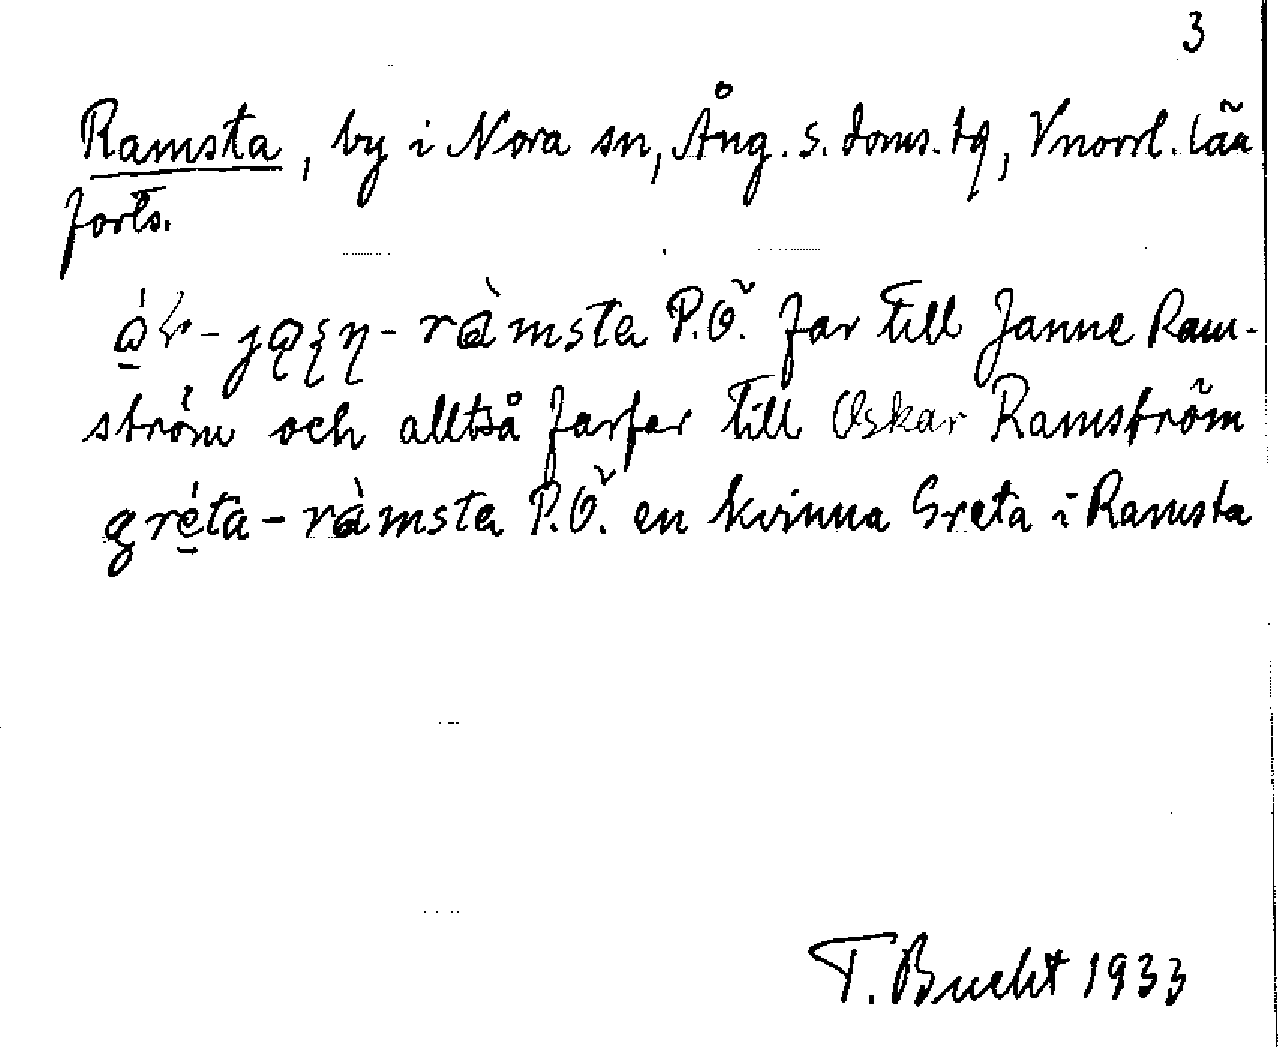 3
Ramsta, by i Nora sn, Ång. s. doms. tg, Vnorrl. län
forts.
-ràmsta P.Ö. far till Janne Ram-
ström och alltså farfar till Oskar Ramström
gréta-ràmsta P.Ö. en kvinna Greta i Ramsta
T. Bucht 1933